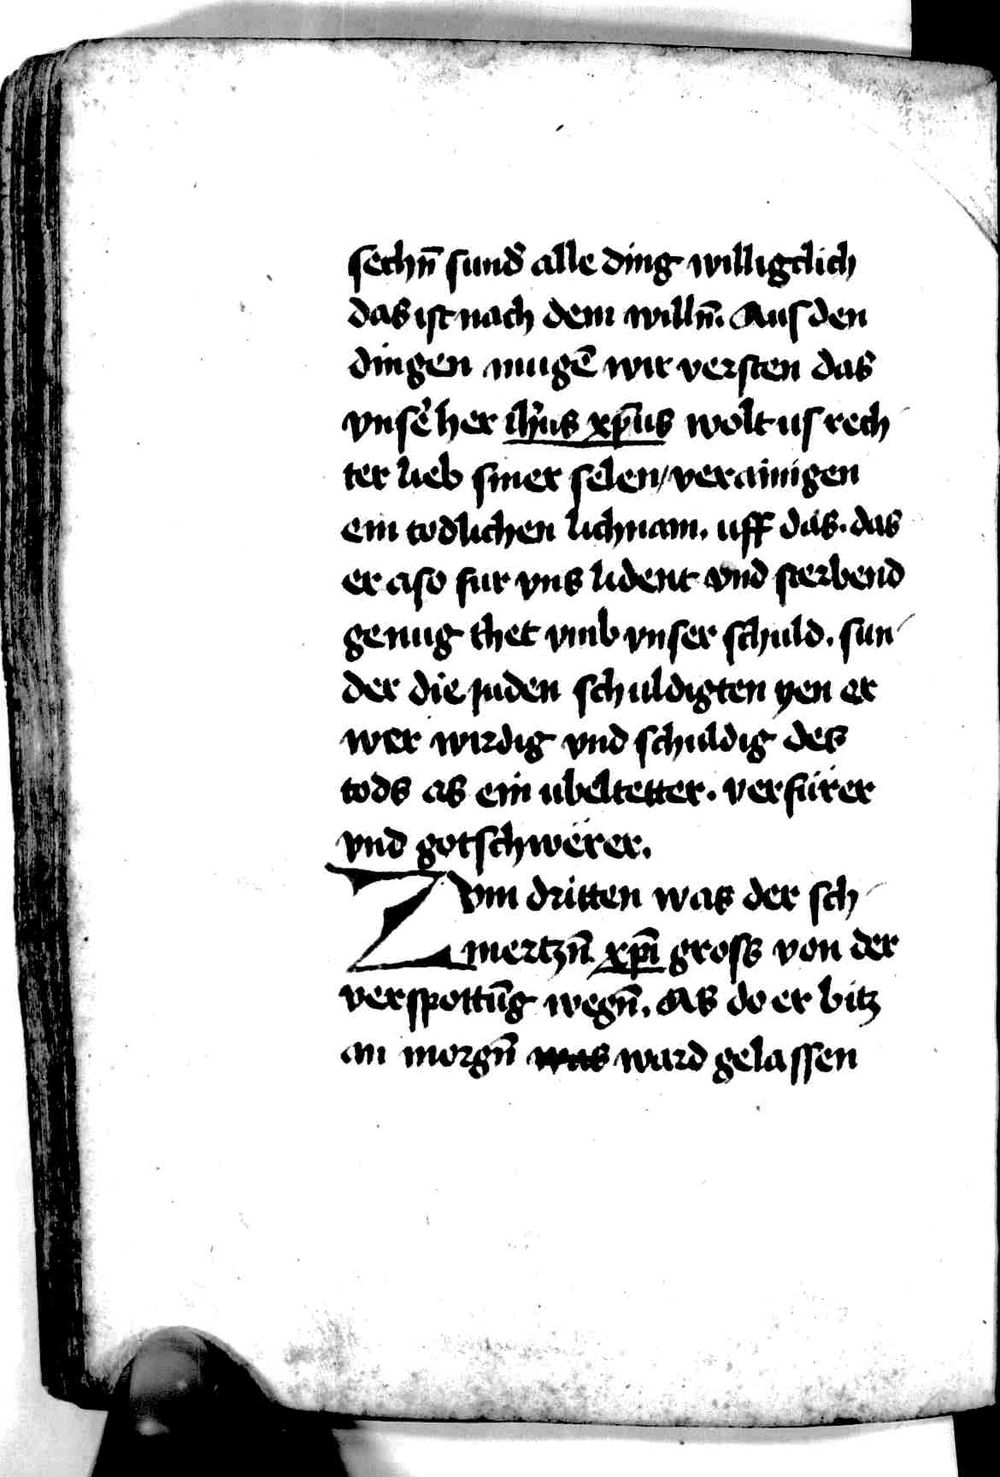 sechn̄ sund̄ alle ding willigclich
das ist nach dem willn̄. Aus den
dingen mugē wir versten das
vnser̄ her ihūs xp̄us wolt us rech
ter lieb siner selen / verainigen
ein todlichen lichnam. uff das. das
er aso fur vns lident vnd sterbend
genug thet vmb vnser schuld. sun
der die juden schuldigten yen er
wer wirdig vnd schuldig des
tods as ein ubeltetter. verfürer
vnd gotschwerer.
Zvm dritten was der sch
mertzn̄ xp̄i gross von der
verspottūg wegn̄. As do er bitz
an morgn̄ was ward gelassen